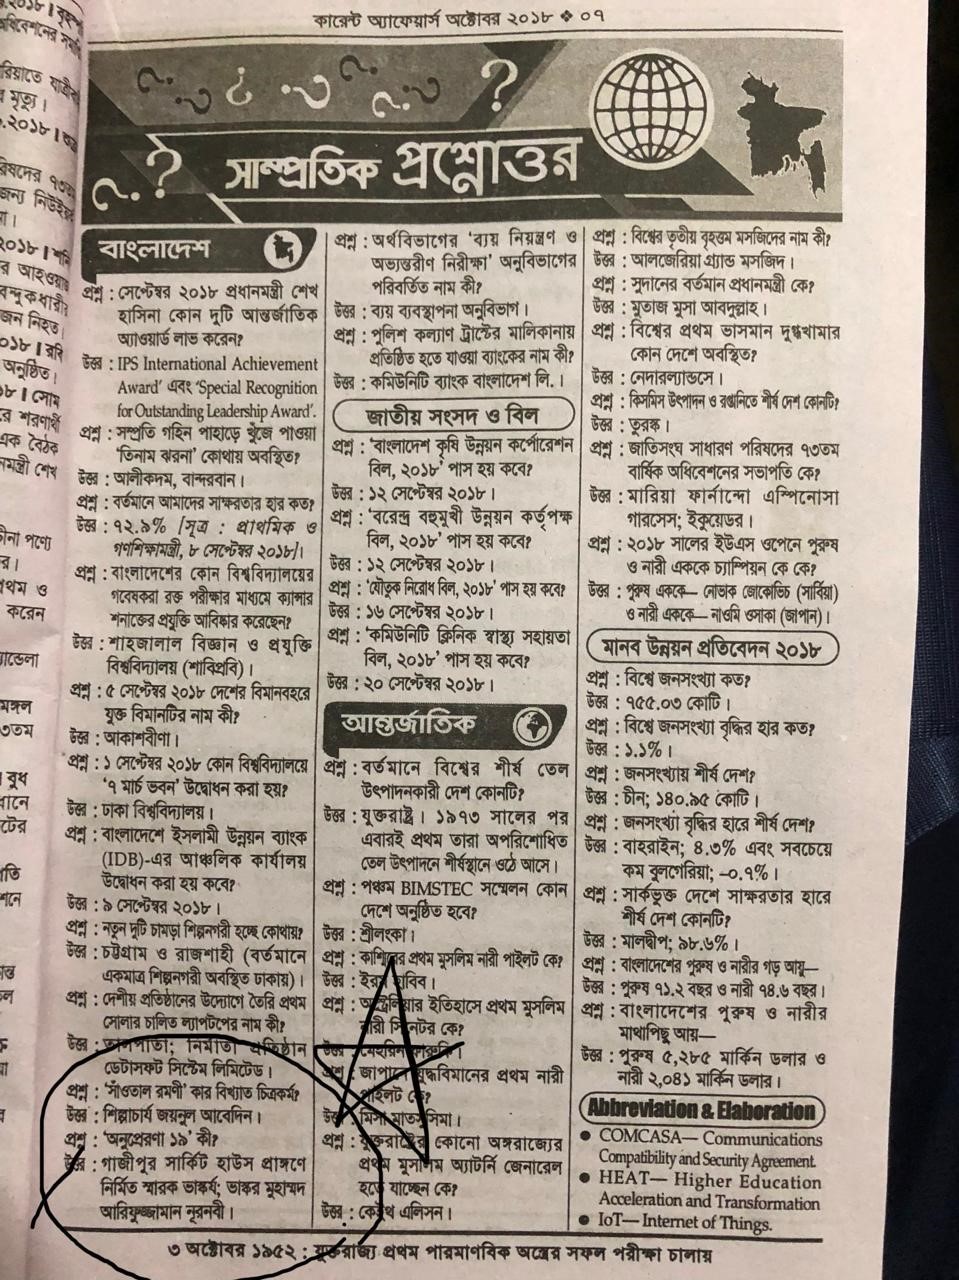 কারেন্ট অ্যাফেয়ার্স অক্টোবর ২০১৮ ❖ ০৭
সাম্প্রতিক প্রশ্নোত্তর
বাংলাদেশ
প্রশ্ন : সেপ্টেম্বর ২০১৮ প্রধানমন্ত্রী শেখ
হাসিনা কোন দুটি আন্তর্জাতিক
অ্যাওয়ার্ড লাভ করেন?
উত্তর : IPS International Achievement
Award’ এবং ‘Special Recognition
for Outstanding Leadership Award’.
প্রশ্ন : সম্প্রতি গহিন পাহাড়ে খুঁজে পাওয়া
‘তিনাম ঝরনা’ কোথায় অবস্থিত?
উত্তর : আলীকদম, বান্দরবান।
প্রশ্ন : বর্তমানে আমাদের সাক্ষরতার হার কত?
উত্তর : ৭২.৯% [সূত্র : প্রাথমিক ও
গণশিক্ষামন্ত্রী, ৮ সেপ্টেম্বর ২০১৮]।
প্রশ্ন : বাংলাদেশের কোন বিশ্ববিদ্যালয়ের
গবেষকরা রক্ত পরীক্ষার মাধ্যমে ক্যান্সার
শনাক্তের প্রযুক্তি আবিষ্কার করেছেন?
উত্তর : শাহজালাল বিজ্ঞান ও প্রযুক্তি
বিশ্ববিদ্যালয় (শাবিপ্রবি)।
প্রশ্ন : ৫ সেপ্টেম্বর ২০১৮ দেশের বিমানবহরে
যুক্ত বিমানটির নাম কী?
উত্তর : আকাশবীণা।
প্রশ্ন : ১ সেপ্টেম্বর ২০১৮ কোন বিশ্ববিদ্যালয়ে
‘৭ মার্চ ভবন’ উদ্বোধন করা হয়?
উত্তর : ঢাকা বিশ্ববিদ্যালয়।
প্রশ্ন : বাংলাদেশে ইসলামী উন্নয়ন ব্যাংক
(IDB)-এর আঞ্চলিক কার্যালয়
উদ্বোধন করা হয় কবে?
উত্তর : ৯ সেপ্টেম্বর ২০১৮।
প্রশ্ন : নতুন দুটি চামড়া শিল্পনগরী হচ্ছে কোথায়?
উত্তর : চট্টগ্রাম ও রাজশাহী (বর্তমানে
একমাত্র শিল্পনগরী অবস্থিত ঢাকায়)।
প্রশ্ন : দেশীয় প্রতিষ্ঠানের উদ্যোগে তৈরি প্রথম
সোলার চালিত ল্যাপটপের নাম কী?
উত্তর : তালপাতা; নির্মাতা প্রতিষ্ঠান
ডেটাসফট সিস্টেম লিমিটেড।
প্রশ্ন : ‘সাঁওতাল রমণী’ কার বিখ্যাত চিত্রকর্ম?
উত্তর : শিল্পাচার্য জয়নুল আবেদিন।
প্রশ্ন : ‘অনুপ্রেরণা ১৯’ কী?
উত্তর : গাজীপুর সার্কিট হাউস প্রাঙ্গণে
নির্মিত স্মারক ভাস্কর্য; ভাস্কর মুহাম্মদ
আরিফুজ্জামান নূরনবী।
প্রশ্ন : অর্থবিভাগের ‘ব্যয় নিয়ন্ত্রণ ও
অভ্যন্তরীণ নিরীক্ষা’ অনুবিভাগের
পরিবর্তিত নাম কী?
উত্তর : ব্যয় ব্যবস্থাপনা অনুবিভাগ।
প্রশ্ন : পুলিশ কল্যাণ ট্রাস্টের মালিকানায়
প্রতিষ্ঠিত হতে যাওয়া ব্যাংকের নাম কী?
উত্তর : কমিউনিটি ব্যাংক বাংলাদেশ লি.।
জাতীয় সংসদ ও বিল
প্রশ্ন : ‘বাংলাদেশ কৃষি উন্নয়ন কর্পোরেশন
বিল, ২০১৮’ পাস হয় কবে?
উত্তর : ১২ সেপ্টেম্বর ২০১৮।
প্রশ্ন : ‘বরেন্দ্র বহুমুখী উন্নয়ন কর্তৃপক্ষ
বিল, ২০১৮’ পাস হয় কবে?
উত্তর : ১২ সেপ্টেম্বর ২০১৮।
প্রশ্ন : ‘যৌতুক নিরোধ বিল, ২০১৮’ পাস হয় কবে?
উত্তর : ১৬ সেপ্টেম্বর ২০১৮।
প্রশ্ন : ‘কমিউনিটি ক্লিনিক স্বাস্থ্য সহায়তা
বিল, ২০১৮’ পাস হয় কবে?
উত্তর : ২০ সেপ্টেম্বর ২০১৮।
আন্তর্জাতিক
প্রশ্ন : বর্তমানে বিশ্বের শীর্ষ তেল
উৎপাদনকারী দেশ কোনটি?
উত্তর : যুক্তরাষ্ট্র। ১৯৭৩ সালের পর
এবারই প্রথম তারা অপরিশোধিত
তেল উৎপাদনে শীর্ষস্থানে ওঠে আসে।
প্রশ্ন : পঞ্চম BIMSTEC সম্মেলন কোন
দেশে অনুষ্ঠিত হবে?
উত্তর : শ্রীলংকা।
প্রশ্ন : কাশ্মিরের প্রথম মুসলিম নারী পাইলট কে?
উত্তর : ইরম হাবিব।
প্রশ্ন : অস্ট্রেলিয়ার ইতিহাসে প্রথম মুসলিম
নারী সিনেটর কে?
উত্তর : মেহরিন ফারুকি।
প্রশ্ন : জাপানে যুদ্ধবিমানের প্রথম নারী
পাইলট কে?
উত্তর : মিসা মাতসুসিমা।
প্রশ্ন : যুক্তরাষ্ট্রের কোনো অঙ্গরাজ্যের
প্রথম মুসলিম অ্যাটর্নি জেনারেল
হতে যাচ্ছেন কে?
উত্তর : কেইথ এলিসন।
প্রশ্ন : বিশ্বের তৃতীয় বৃহত্তম মসজিদের নাম কী?
উত্তর : আলজেরিয়া গ্র্যান্ড মসজিদ।
প্রশ্ন : সুদানের বর্তমান প্রধানমন্ত্রী কে?
উত্তর : মুতাজ মুসা আবদুল্লাহ।
প্রশ্ন : বিশ্বের প্রথম ভাসমান দুগ্ধখামার
কোন দেশে অবস্থিত?
উত্তর : নেদারল্যান্ডসে।
প্রশ্ন : কিসমিস উৎপাদন ও রপ্তানিতে শীর্ষ দেশ কোনটি?
উত্তর : তুরস্ক।
প্রশ্ন : জাতিসংঘ সাধারণ পরিষদের ৭৩তম
বার্ষিক অধিবেশনের সভাপতি কে?
উত্তর : মারিয়া ফার্নান্দো এস্পিনোসা
গারসেস; ইকুয়েডর।
প্রশ্ন : ২০১৮ সালের ইউএস ওপেনে পুরুষ
ও নারী এককে চ্যাম্পিয়ন কে কে?
উত্তর : পুরুষ এককে— নোভাক জোকোভিচ (সার্বিয়া)
ও নারী এককে— নাওমি ওসাকা (জাপান)।
মানব উন্নয়ন প্রতিবেদন ২০১৮
প্রশ্ন : বিশ্বে জনসংখ্যা কত?
উত্তর : ৭৫৫.০৩ কোটি।
প্রশ্ন : বিশ্বে জনসংখ্যা বৃদ্ধির হার কত?
উত্তর : ১.১%।
প্রশ্ন : জনসংখ্যায় শীর্ষ দেশ?
উত্তর : চীন; ১৪০.৯৫ কোটি।
প্রশ্ন : জনসংখ্যা বৃদ্ধির হারে শীর্ষ দেশ?
উত্তর : বাহরাইন; ৪.৩% এবং সবচেয়ে
কম বুলগেরিয়া; –০.৭%।
প্রশ্ন : সার্কভুক্ত দেশে সাক্ষরতার হারে
শীর্ষ দেশ কোনটি?
উত্তর : মালদ্বীপ; ৯৮.৬%।
প্রশ্ন : বাংলাদেশের পুরুষ ও নারীর গড় আয়ু—
উত্তর : পুরুষ ৭১.২ বছর ও নারী ৭৪.৬ বছর।
প্রশ্ন : বাংলাদেশের পুরুষ ও নারীর
মাথাপিছু আয়—
উত্তর : পুরুষ ৫,২৮৫ মার্কিন ডলার ও
নারী ২,০৪১ মার্কিন ডলার।
Abbreviation & Elaboration
● COMCASA— Communications
Compatibility and Security Agreement.
● HEAT— Higher Education
Acceleration and Transformation
● IoT— Internet of Things.
৩ অক্টোবর ১৯৫২ : যুক্তরাজ্য প্রথম পারমাণবিক অস্ত্রের সফল পরীক্ষা চালায়